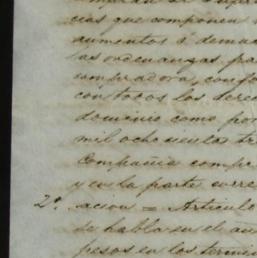 cias que componen
aumentos ó demas
las ordenanzas. pa
compradora, conf
con todos los derec
dominio como po
mil ochocientos tr
Compañia compr
y en la parte corre
2º acion = Articulo
se habla en el an
pesos en los termin